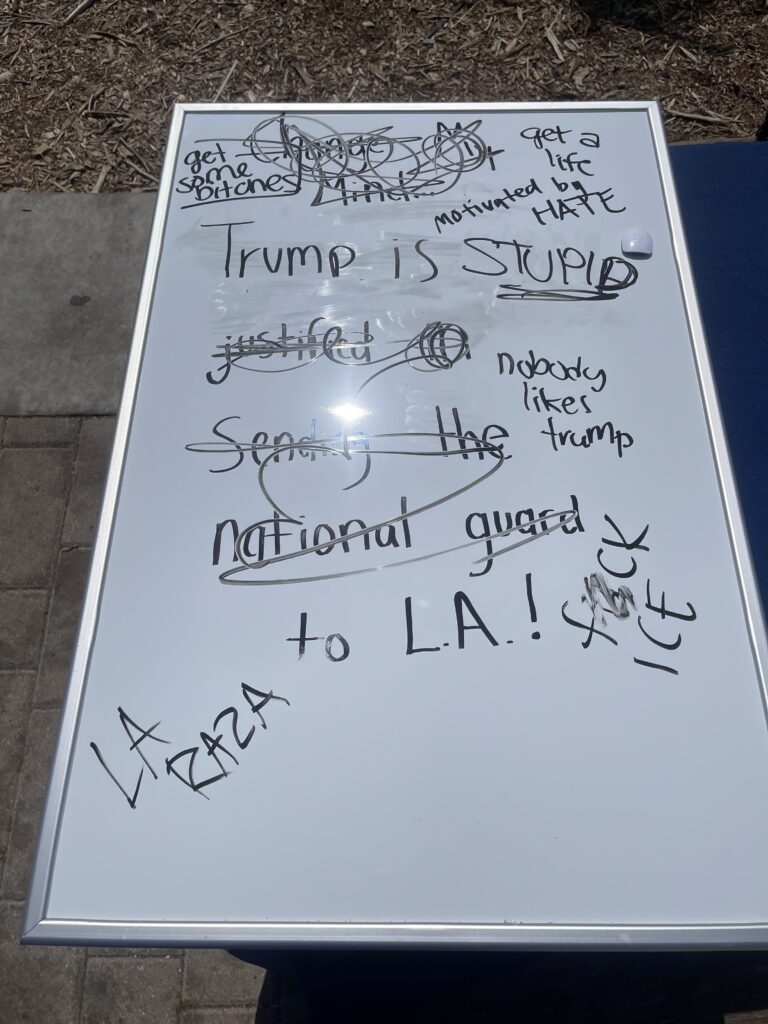 get
some
bitches
Change My
Mind
get a
life
motivated by
HATE
Trump is STUPID
justifed in
nobody
likes
trump
Sending the
national guard
to L.A.!
FUCK
ICE
LA
RAZA